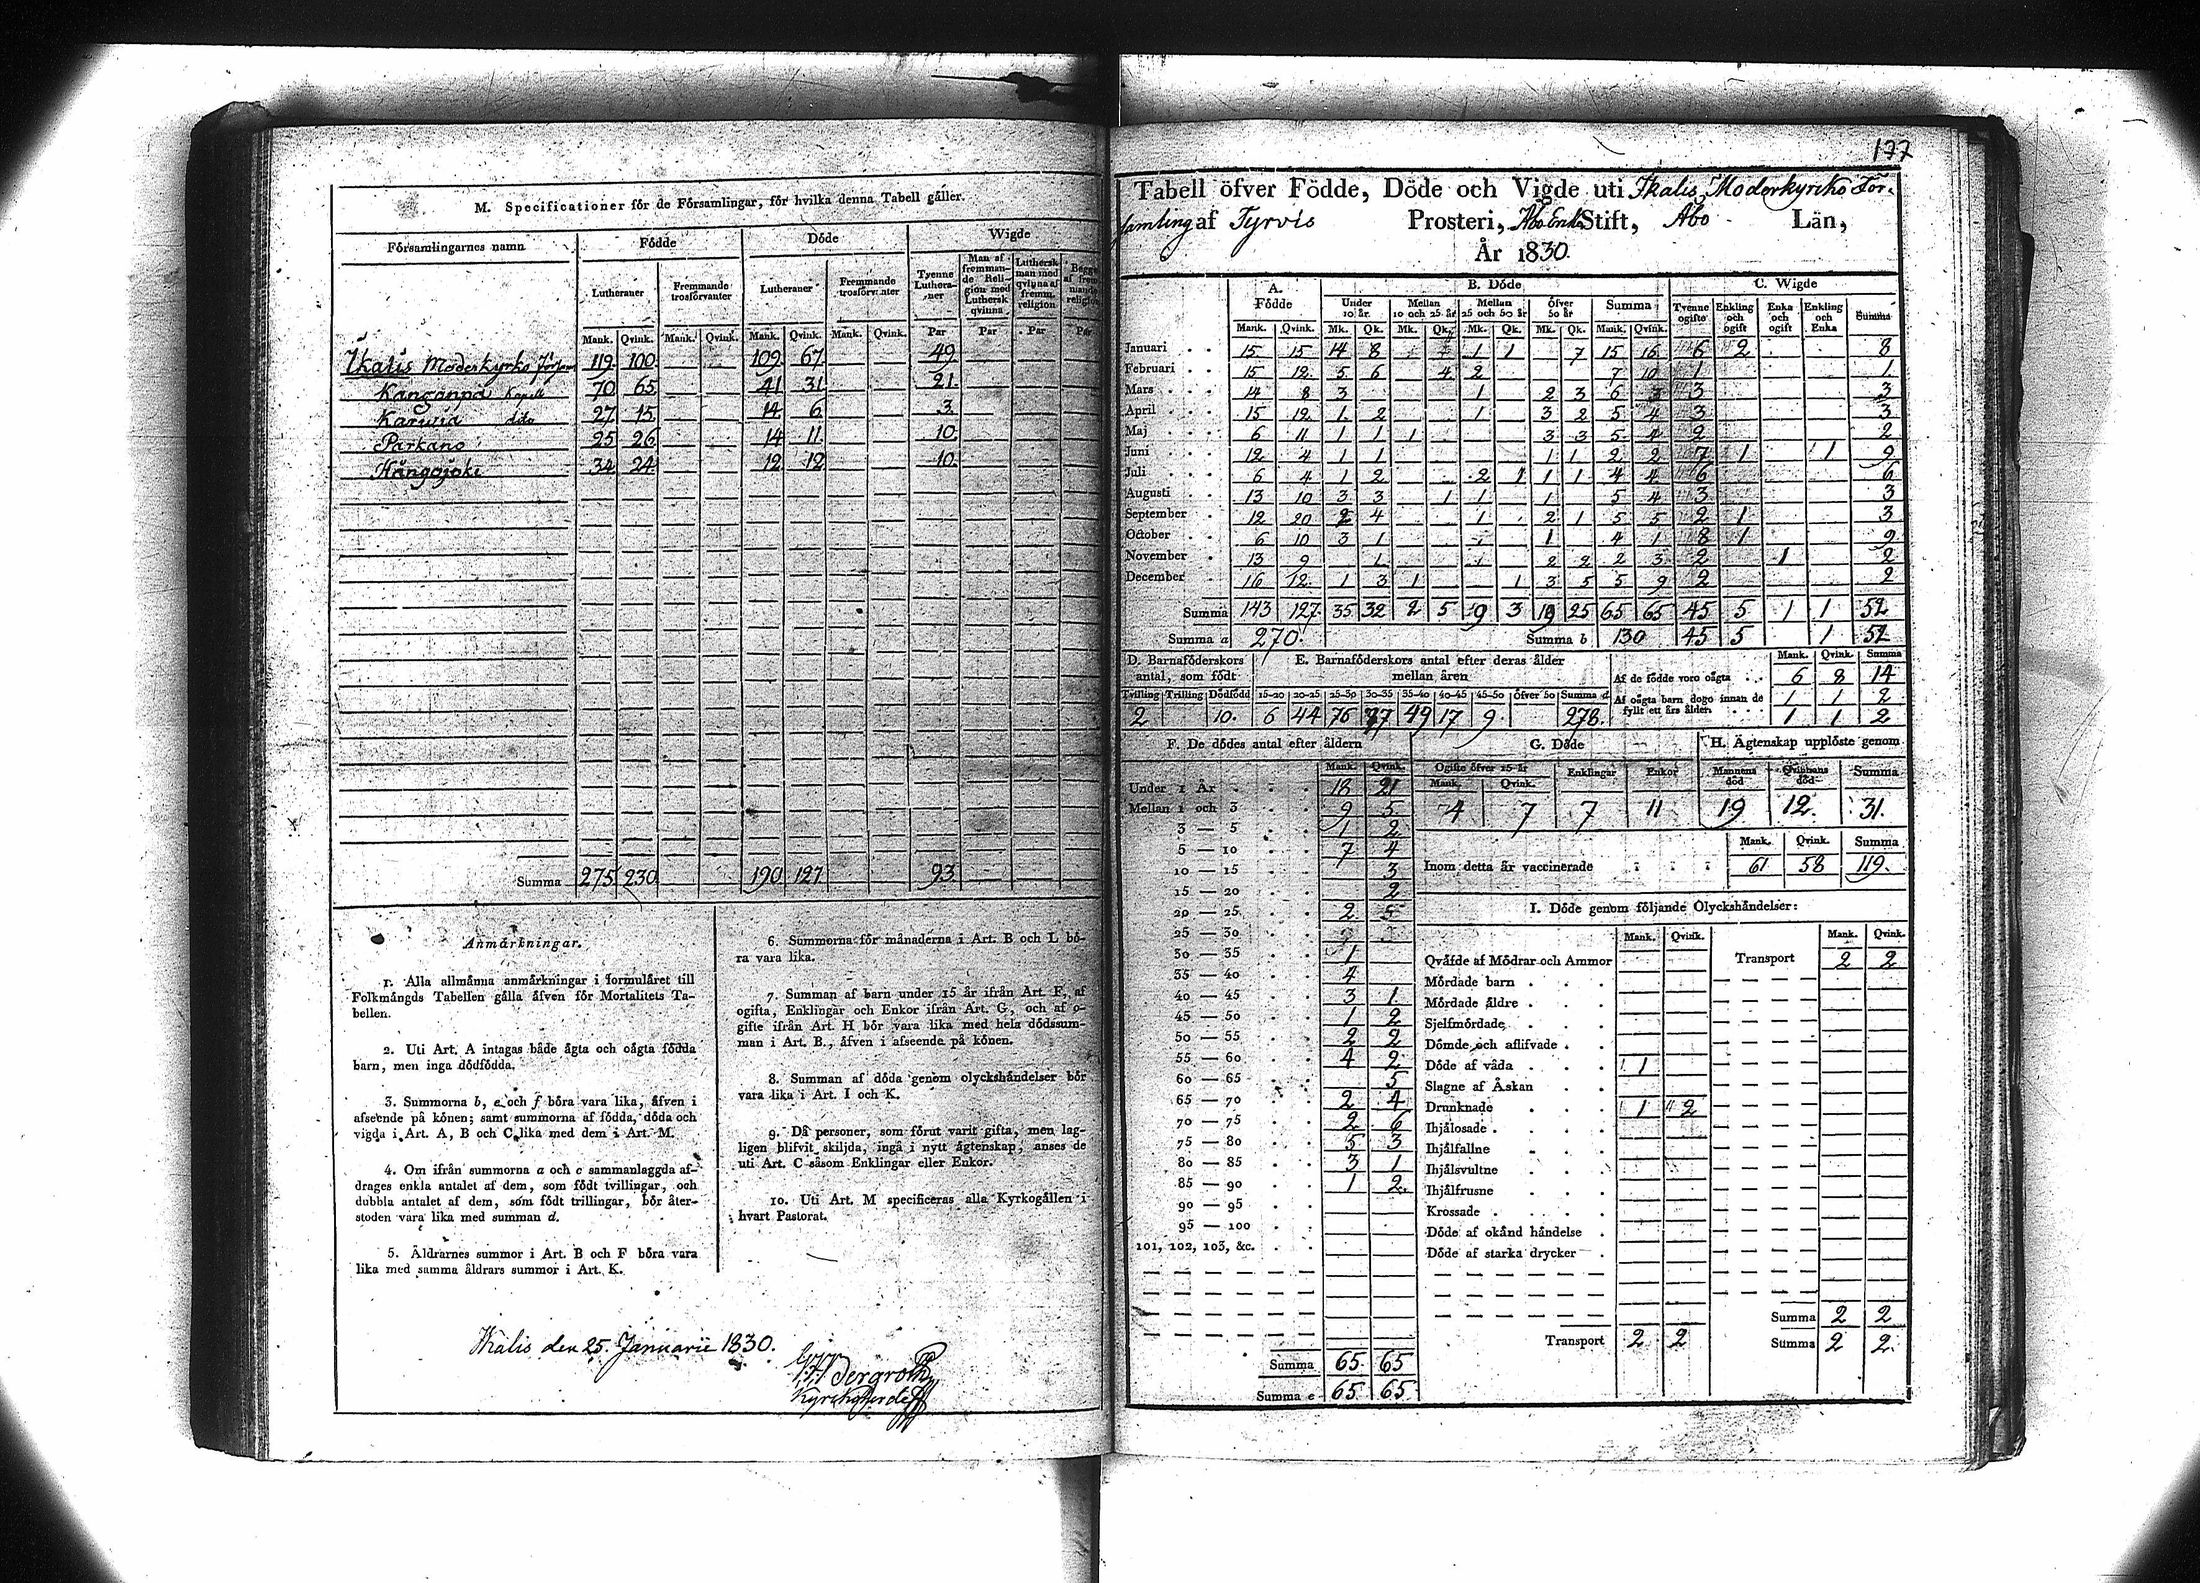 M. Specificationer för de Församlingar, för hvilka denna Tabell gäller.
Församlingarnes namn Födde Döde Wigde
Lutheraner Fremmande trosförvanter Lutheraner Fremmande trosförvanter Tvenne Lutheraner Man af fremmande Religion med Luthersk qvinna Luthersk man med qvinna af fremm. religion. Begge af fremmande religion
Mank. Qvink. Mank. Qvink. Mank. Qvink. Mank. Qvink. Par Par Par Par
Ikalis Moderkyrko 119 100 109 67 49
Kanganpä Kapell 70 65 41 31 21
Karwia dito 27 15 14 6 3
Parkano 25 26 14 11 10
Hångojoki 34 24 12 12 10
Summa 275 230 190 127 93
Anmärkningar.
1. Alla allmänna anmärkningar i formuläret till
Folkmängds Tabellen gälla äfven för Mortalitets Ta-
bellen.
2. Uti Art. A intagas både ägta och oägta födda
barn, men inga dödfödda.
3. Summorna b, e och f böra vara lika, äfven i
afseende på könen; samt summorna af födda, döda och
vigda i Art. A, B och C lika med dem i Art. M.
4. Om ifrån summorna a och c sammanlaggda af-
drages enkla antalet af dem, som födt tvillingar, och
dubbla antalet af dem, som födt trillingar, bör åter-
stoden vara lika med summan d.
5. Åldrarnes summor i Art. B och F böra vara
lika med samma åldrars summor i Art. K.
6. Summorna för månaderna i Art. B och L bö-
ra vara lika.
7. Summan af barn under 15 år ifrån Art. F, af
ogifta, Enklingar och Enkor ifrån Art. G, och af o-
gifte ifrån Art. H bör vara lika med hela dödssum-
man i Art. B., äfven i afseende på könen.
8. Summan af döda genom olyckshändelser bör
vara lika i Art. I och K.
9. Då personer, som förut varit gifta, men lag-
ligen blifvit skiljda, ingå i nytt ägtenskap, anses de
uti Art. C såsom Enklingar eller Enkor.
10. Uti Art. M specificeras alla Kyrkogällen i
hvart Pastorat.
Ikalis den 25. Januarii 1830.
Kyrkoherde
177
Tabell öfver Födde, Döde och Vigde uti Ikalis Moderkyrko För-
samling af Tyrvis Prosteri, Åbo Erke Stift, Åbo Län,
År 1830.
A. Födde B. Döde C. Wigde
Under 10 år. Mellan 10 och 25 år Mellan 25 och 50 år Öfver 50 år Summa Tvenne ogifte Enkling och ogift Enka och ogift Enkling och Enka Summa
Mank. Qvink. Mk. Qk. Mk. Qk. Mk. Qk. Mk. Qk. Mank. Qvink.
Januari 15 15 14 8 1 1 7 15 16 6 2 8
Februari 15 12 5 6 4 2 7 10 1 1
Mars 14 8 3 1 2 3 6 3 3 3
April 15 12 1 2 1 3 2 5 4 3 3
Maj 6 11 1 1 1 3 3 5 4 2 2
Juni 12 4 1 1 1 1 2 2 7 1 1 9
Juli 6 4 1 2 2 1 1 1 4 4 6 6
Augusti 13 10 3 3 1 1 1 5 4 3 3
September 12 20 2 4 1 2 1 5 5 2 1 3
October 6 10 3 1 1 4 1 8 1 9
November 13 9 1 1 2 2 2 3 2 1 2
December 16 12 1 3 1 1 3 5 5 9 2 2
Summa 143 127 35 32 2 5 9 3 19 25 65 65 45 5 1 1 52
Summa a 270 Summa b 130 45 5 1 52
D. Barnaföderskors antal, som födt E. Barnaföderskors antal efter deras ålder mellan åren Mank. Qvink. Summa
Af de födde voro oägta 6 8 14
Tvilling Trilling Dödfödd 15-20 20-25 25-30 30-35 35-40 40-45 45-50 Öfver 50 Summa d Af oägta barn dogo innan de fyllt ett års ålder 1 1 2
2 10. 6 44 76 77 49 17 9 278. 1 1 2
F. De dödes antal efter åldern G. Döde H. Ägtenskap upplöste genom
Mank. Qvink. Ogifte öfver 15 år Mank. Qvink. Enklingar Enkor Mannens död Qvinnans död Summa
Under 1 År 18 21
Mellan 1 och 3 9 5 4 7 7 11 19 12. 31.
3 — 5 1 2
5 — 10 7 4 Mank. Qvink. Summa
10 — 15 3 Inom detta år vaccinerade 61 58 119.
15 — 20 2
20 — 25 2 5 I. Döde genom följande Olyckshändelser:
25 — 30 Mank. Qvink. Mank. Qvink.
30 — 35 1 Qväfde af Mödrar och Ammor Transport 2 2
35 — 40 4 Mördade barn
40 — 45 3 1 Mördade äldre
45 — 50 1 2 Sjelfmördade
50 — 55 2 2 Dömde och aflifvade
55 — 60 4 2 Döde af våda 1
60 — 65 5 Slagne af Åskan
65 — 70 2 4 Drunknade 1 2
70 — 75 2 6 Ihjälosade
75 — 80 5 3 Ihjälfallne
80 — 85 3 1 Ihjälsvultne
85 — 90 1 2. Ihjälfrusne
90 — 95 Krossade
95 — 100 Döde af okänd händelse
101, 102, 103, &c. Döde af starka drycker
Summa 2 2
Transport 2 2 Summa 2 2.
Summa 65 65
Summa e 65 65